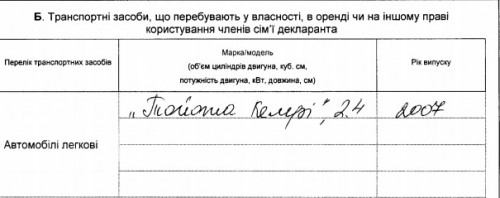 Б. Транспортні засоби, що перебувають у власності, в оренді чи на іншому праві
користування членів сім'ї декларанта
Перелік транспортних засобів
Марка/модель
(об'єм циліндрів двигуна, куб. см,
потужність двигуна, кВт, довжина, см)
Рік випуску
Автомобілі легкові
„Тойота Кемрі", 2.4
2007